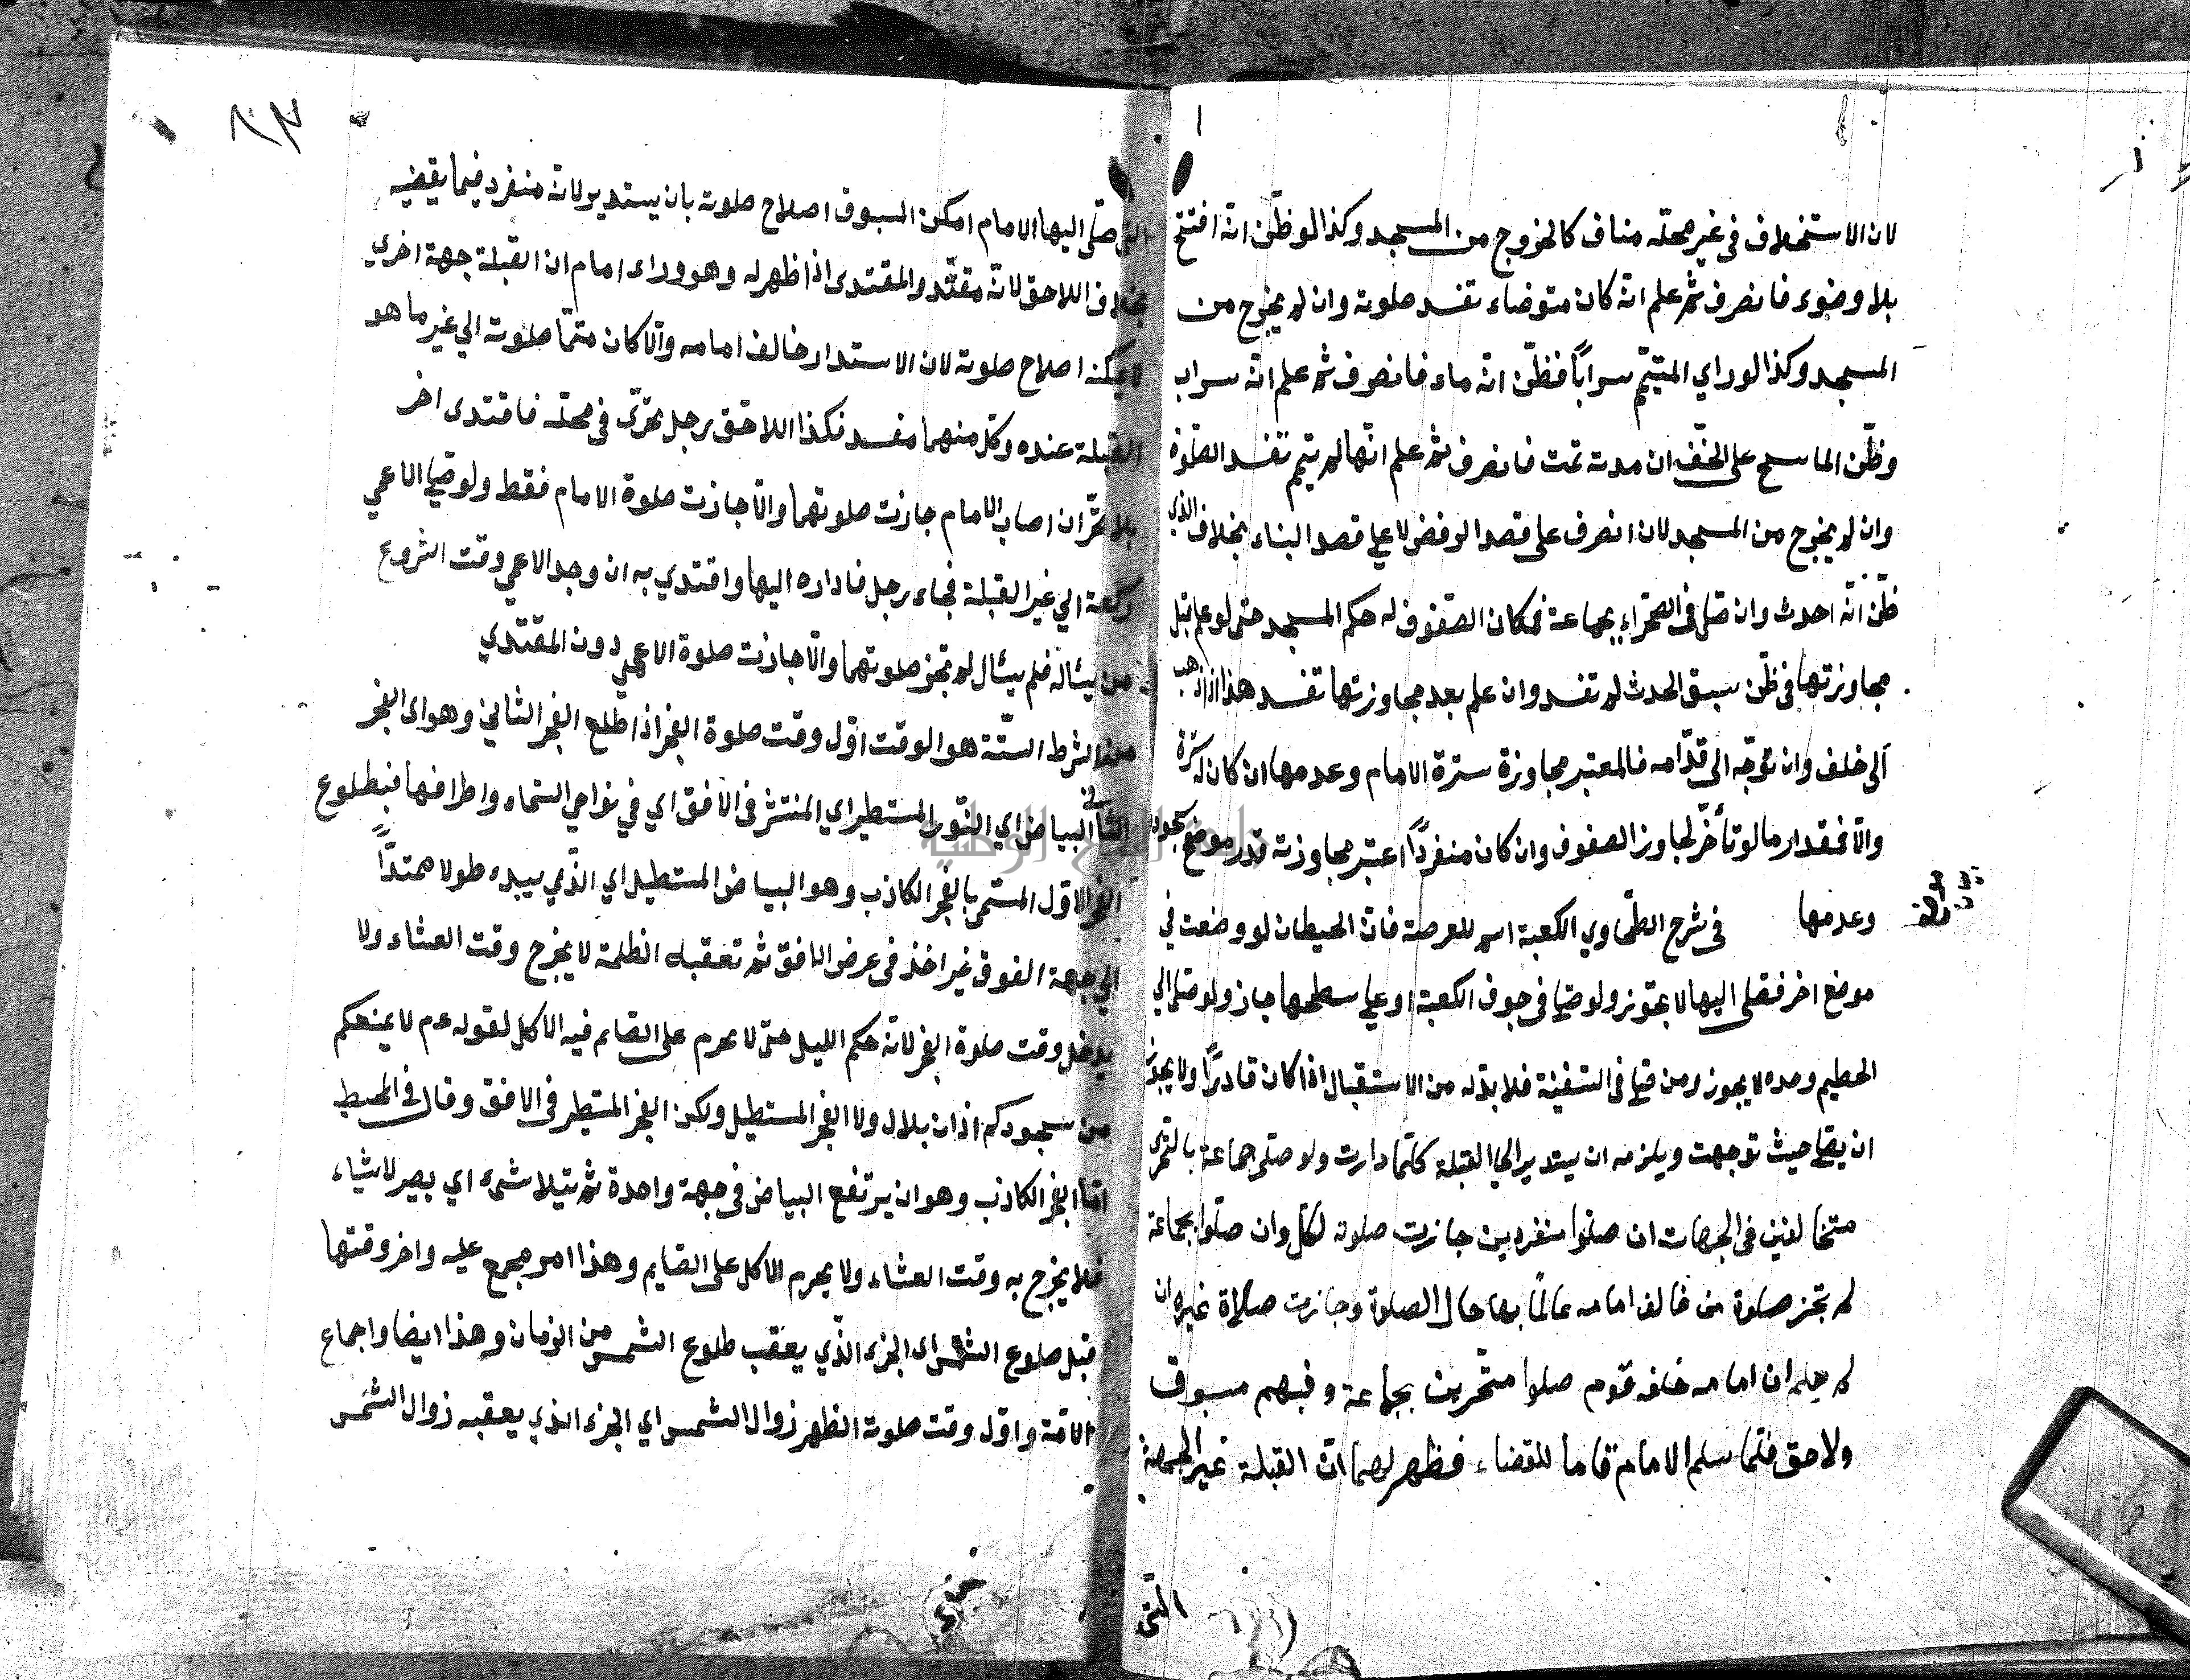 لان الاستخلاف في غير محله مناف كالخروج من المسجد وكذا لو ظن انه افتتح
بلا وضوء فانصرف ثم علم انه كان متوضاء تفسد صلوته وان لم يخرج من
المسجد وكذا لو راي المتيمم سرابًا فظن انه ماء فانصرف ثم علم انه سراب
وظن الماسح على الخف ان مدته تمت فانصرف ثم علم انها لم يتم تفسد الصلوة
وان لم يخرج من المسجد لان انصرف على قصد الرفض لا علي قصد البناء بخلاف الذي
ظن انه احدث وان صلى في الصحراء بجماعة فمكان الصفوف له حكم المسجد حتى لو علم قبل
مجاوزتها في ظن سبق الحدث لم تفسد وان علم بعد مجاوزتها تفسد هذا اذا ذهب
الى خلف وان توجه الى قدامه فالمعتبر مجاوزة سترة الامام وعدمها ان كان له سترة
والا فمقدار ما لو تأخر لجاوز الصفوف وان كان منفردًا اعتبر مجاوزته قدر موضع سجوده
وعدمها في شرح الطحاوي الكعبة اسم للعرصة فان الحيطان لو وضعت في
موضع اخر فصلى اليها لا يجوز ولو صلي في جوف الكعبة او علي سطحها جاز ولو صلى الي
الحطيم وحده لا يجوز ومن صلي في السفينة فلا بد له من الاستقبال اذا كان قادرًا ولا يجوز
ان يصلي حيث توجهت ويلزمه ان يستدير الي القبلة كلما دارت ولو صلى جماعة بالتحري
متخالفين في الجهات ان صلوا منفردين جازت صلوة لكل وان صلوا بجماعة
لم تجز صلوة من خالف امامه عالمًا بها حال الصلوة وجازت صلاة غيره ان
لم يعلم ان امامه خلفه قوم صلوا متحرين بجماعة وفيهم مسبوق
ولاحق فلما سلم الامام قاما للقضاء فظهر لهما ان القبلة غير الجهة
التي
التي صلى اليها الامام امكن المسبوق اصلاح صلوته بان يستدير لانه منفرد فيما يقضيه
بخلاف اللاحق لانه مقتد والمقتدى اذا ظهر له وهو وراء امام ان القبلة جهة اخري
لا يمكنه اصلاح صلوته لان الاستدار خالف امامه والا كان متما صلوته الي غير ما هو
القبلة عنده وكل منهما مفسد فكذا اللاحق رجل تحرى في محله فاقتدى اخر
بلا تحر ان اصاب الامام جازت صلوتهما والا جازت صلوة الامام فقط ولو صلي الاعمي
ركعة الي غير القبلة فجاء رجل فاداره اليها واقتدي به ان وجد الاعمي وقت الشروع
من يسئاله فلم يسئال لم تجز صلوتهما والا جازت صلوة الاعمي دون المقتدي
من الشرط الستة هو الوقت اول وقت صلوة الفجر اذا طلع الفجر الثاني وهو اي الفجر
الثاني البياض اي النور المستطير اي المنتشر في الافق اي في نواحي السماء واطرافها فبطلوع
الفجر الاول المسمى بالفجر الكاذب وهو البياض المستطيل اي الذي يبدء طولا ممتدًا
الي جهة الفوق غير اخذ في عرض الافق ثم تعقبه الظلمة لا يخرج وقت العشاء ولا
يدخل وقت صلوة الفجر لانه حكم الليل حتى لا يحرم على الصائم فيه الاكل لقوله عم لا يمنعكم
من سجودكم اذان بلال ولا الفجر المستطيل ولكن الفجر المستطر في الافق وقال في المحيط
اما الفجر الكاذب وهو ان يرتفع البياض في جهة واحدة ثم يتلاشىء اي يصير لا شياء
فلا يخرج به وقت العشاء ولا يحرم الاكل على الصايم وهذا امر مجمع عليه واخر وقتها
قبل صلوع الشمس اي الجزء الذي يعقب طلوع الشمس من الزمان وهذا ايضا واجماع
الامة واول وقت صلوة الظهر زوال الشمس اي الجزء الذي يعقبه زوال الشمس